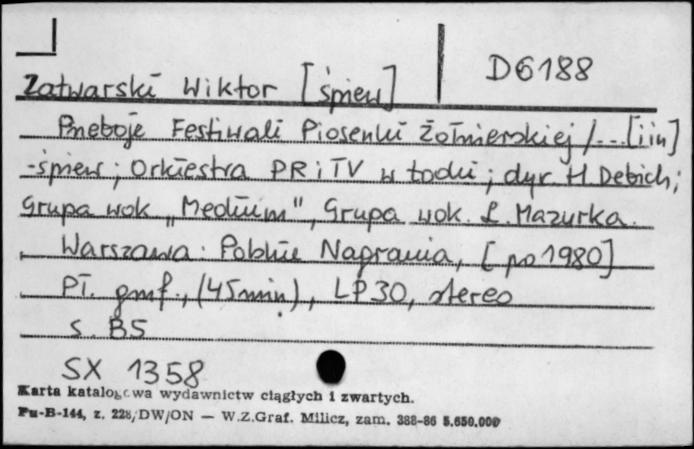 D6188
Zatwarski Wiktor [śpiew]
Przeboje Festiwali Piosenki Żołnierskiej /...[i in]
-śpiew; Orkiestra PR i TV w Łodzi; dyr H. Debich;
Grupa wok „Medium", Grupa wok. Ł. Mazurka.
Warszawa: Polskie Nagrania, [po 1980]
Pł. gmf., (45 min), LP30, stereo
s. B5
SX 1358
Karta katalogowa wydawnictw ciągłych i zwartych.
Pu-B-144, z. 228/DW/ON — W.Z.Graf. Milicz, zam. 388-86 5.650.000